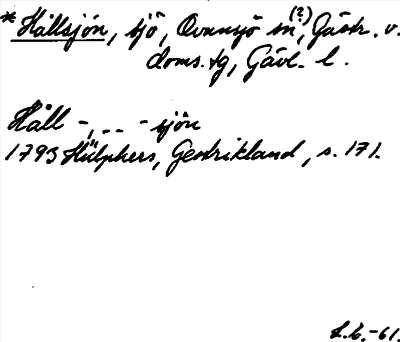 * Hållsjön, sjö, Ovansjö sn(?), Gästr. v.
doms.tg, Gävl. l.
Håll -, -- - sjön
1793 Hülphers, Gestrikland, s. 171.
L.L.-61.